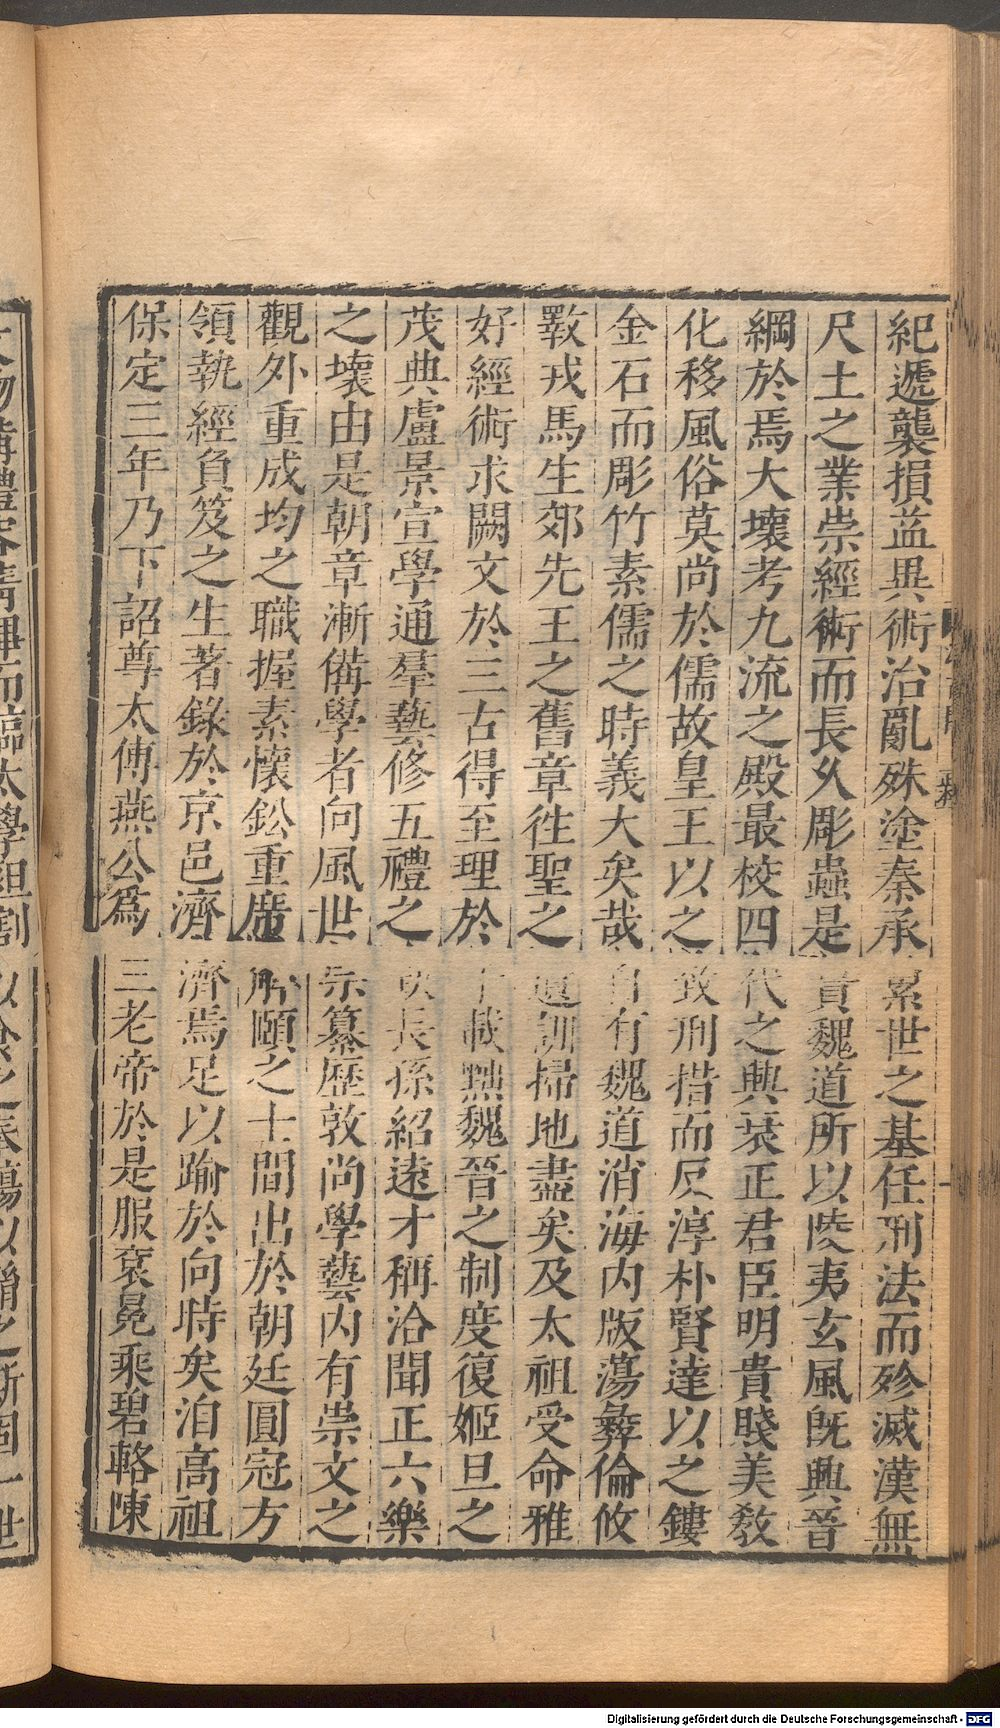 紀遞襲損益異術治亂殊塗秦承累世之基任刑法而殄滅漢無
尺土之業崇經術而長久彫蟲是貴魏道所以陵夷玄風既興晉
綱於焉大壞考九流之殿最校四代之興衰正君臣明貴賤美敎
化移風俗莫尚於儒故皇王以之致刑措而反淳朴賢達以之鏤
金石而彫竹素儒之時義大矣哉自有魏道消海內版蕩彝倫攸
斁戎馬生郊先王之舊章徃聖之遺訓掃地盡矣及太祖受命雅
好經術求闕文於三古得至理於千載黜魏晉之制度復姬旦之
茂典盧景宣學通羣藝修五禮之缺長孫紹遠才稱洽聞正六樂
之壞由是朝章漸備學者向風世宗纂歷敦尚學藝內有崇文之
觀外重成均之職握素懷鈆重席解頤之士間出於朝廷圓冠方
領執經負笈之生著錄於京邑濟濟焉足以踰於向時矣洎高祖
保定三年乃下詔尊太傅燕公爲三老帝於是服袞冕乘碧輅陳
Digitalisierung gefördert durch die Deutsche Forschungsgemeinschaft - DFG